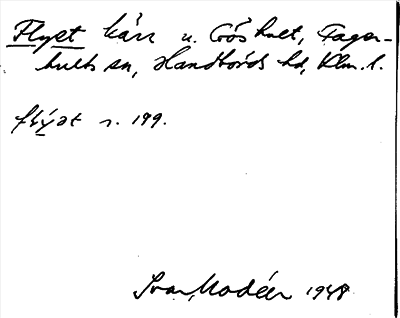 Flyet kärr u. Gröshult, Fager-
hults sn, Handbörds hd, Klm. l.
flýət s. 199.
Ivar Modéer 1948